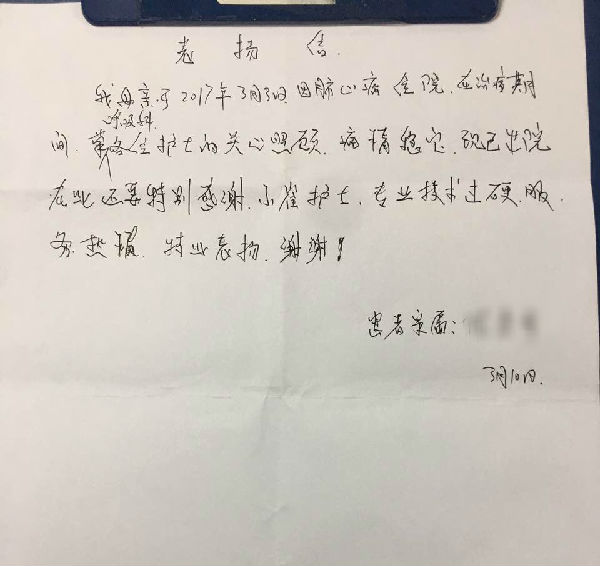 表扬信.
我母亲于2017年3月3日因肺心病住院.在治疗期
呼吸科
间.蒙医生护士的关心照顾.病情稳定.现已出院
在此还要特别感谢.小崔护士.专业技术过硬.服
务热情.特此表扬.谢谢!
患者家属:
3月10日.